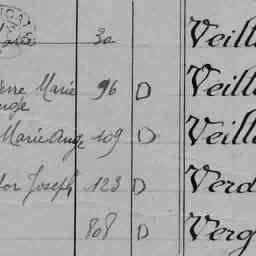 30 Veill
erre Marie 96 D Veill
ange
Marie Ang 109 D Veill
tor Joseph 123 D Verd
808 D Verg